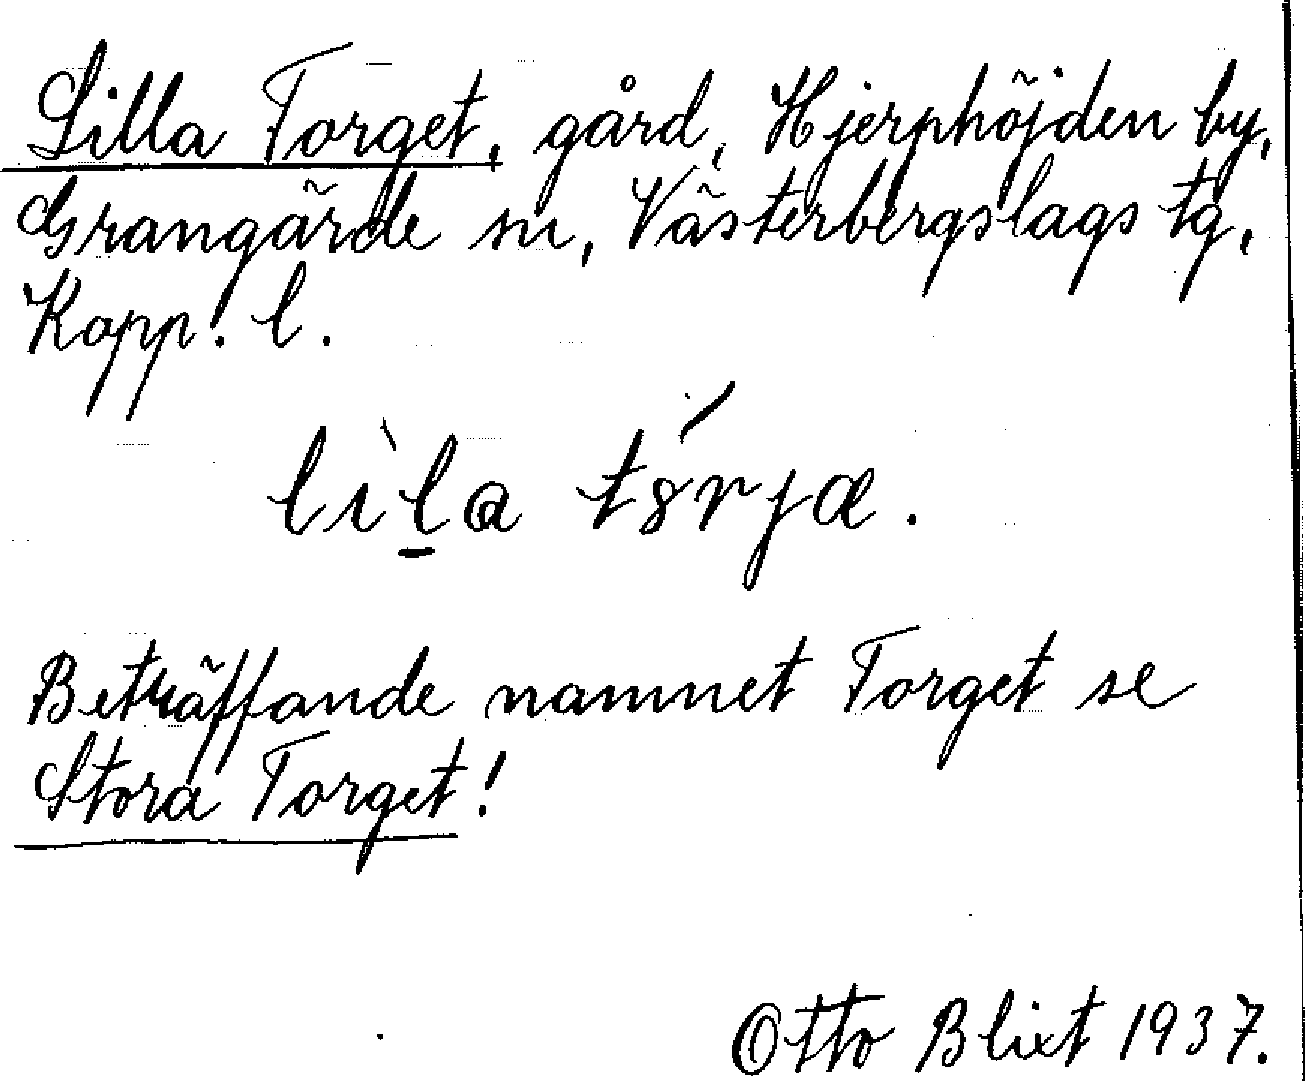 Lilla Torget, gård, Hjerphöjden by,
Grangärde sn, Västerbergslags tg,
Kopp. l.
Beträffande namnet Torget se
Stora Torget!
Otto Blixt 1937.